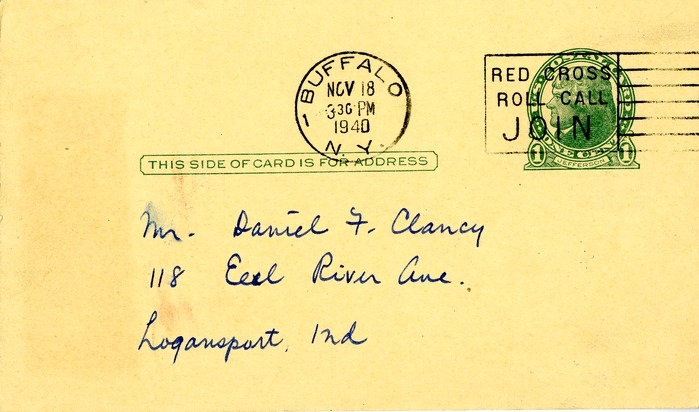 BUFFALO
NOV 18
3 30 PM
1940
N. Y.
1
RED CROSS
ROLL CALL
JOIN
1 JEFFERSON 1
THIS SIDE OF CARD IS FOR ADDRESS
Mr. Daniel F. Clancy
118 Eel River Ave.
Logansport, Ind